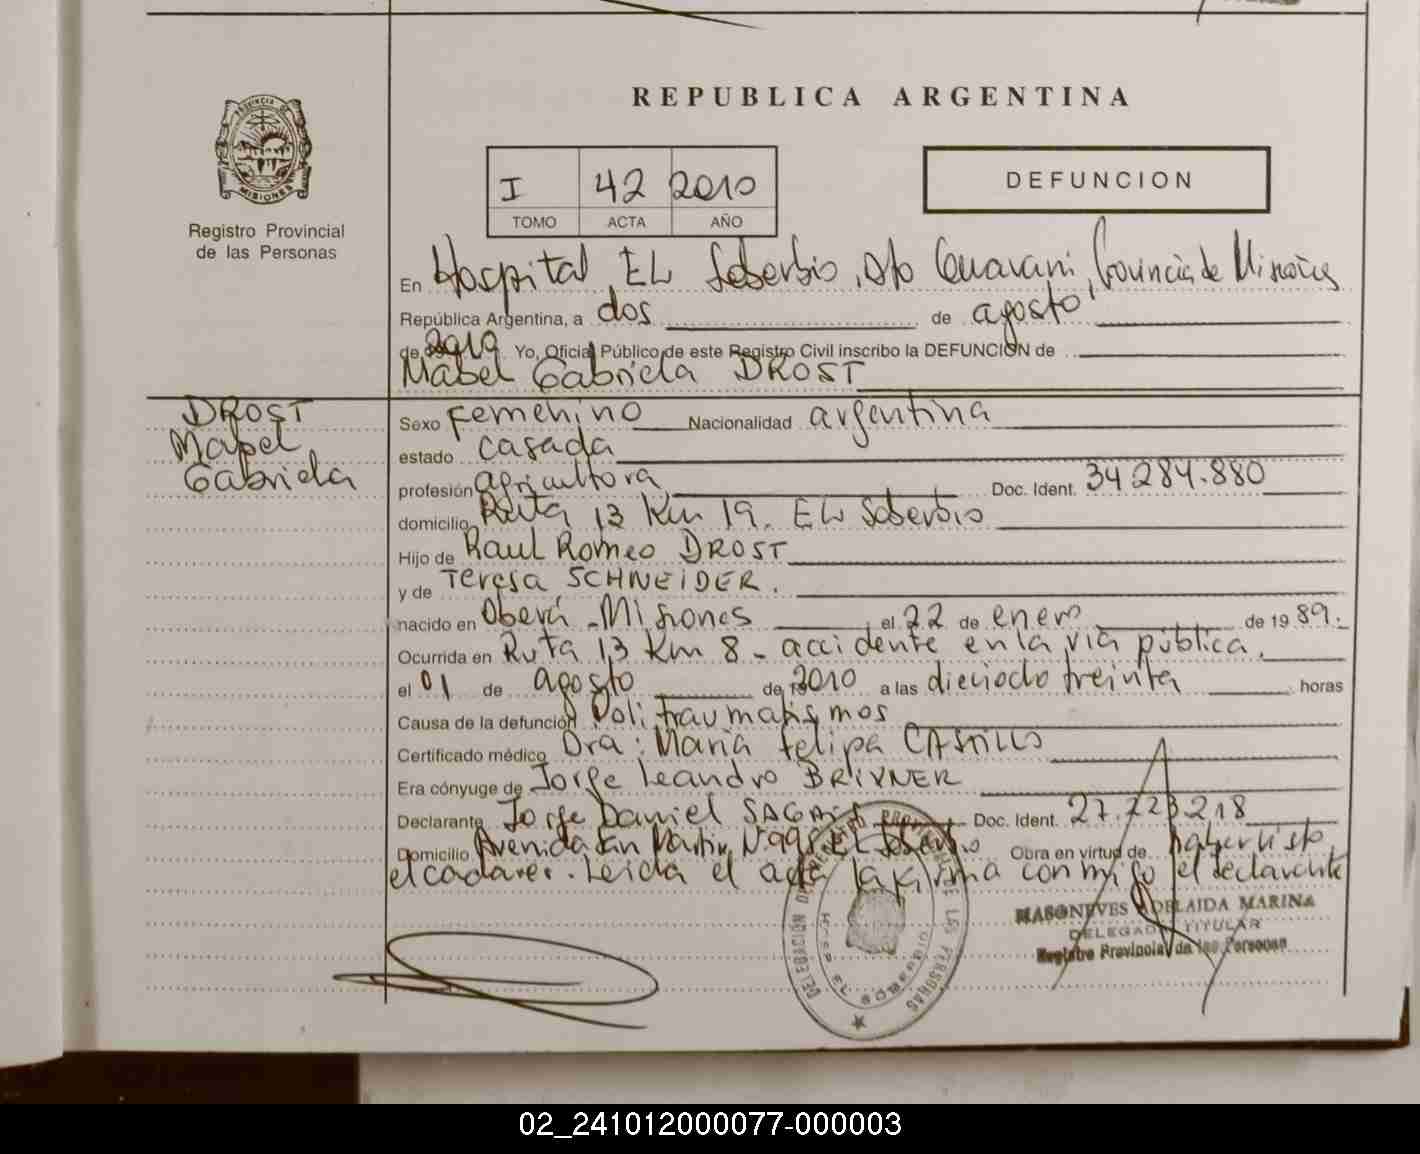 REPUBLICA ARGENTINA
PROVINCIA DE
MISIONES
Registro Provincial
de las Personas
I 42 2010
TOMO ACTA AÑO
DEFUNCION
En Hospital EL Soberbio, Dto Guarani, Provincia de Misiones
República Argentina, a dos de agosto
de 2010 Yo, Oficial Público de este Registro Civil inscribo la DEFUNCIÓN de
Mabel Gabriela DROST
DROST
Mabel
Gabriela
Sexo femenino Nacionalidad argentina
estado casada
profesión agricultora Doc. Ident. 34 284.880
domicilio Ruta 13 Km 19. EL Soberbio
Hijo de Raul Romeo DROST
y de Teresa SCHNEIDER.
nacido en Oberá - Misiones el 22 de enero de 1989.
Ocurrida en Ruta 13 Km 8 - accidente en la via pública.
el 01 de agosto de 2010 a las dieciocho treinta horas
Causa de la defunción Politraumatismos
Certificado médico Dra: Maria Felipa CASTILLO
Era cónyuge de Jorge Leandro BRIXNER
Declarante Jorge Daniel Doc. Ident. 27.223218
Domicilio Avenida San Martin N° 998 EL Soberbio Obra en virtud de haber visto
el cadaver. Leida el acta la firma conmigo el declarante
MASONEVES ADELAIDA MARINA
DELEGADA TITULAR
Registro Provincial de las Personas
DELEGACIÓN DEL REGISTRO PROVINCIAL DE LAS PERSONAS
HOSP. EL SOBERBIO
02_241012000077-000003